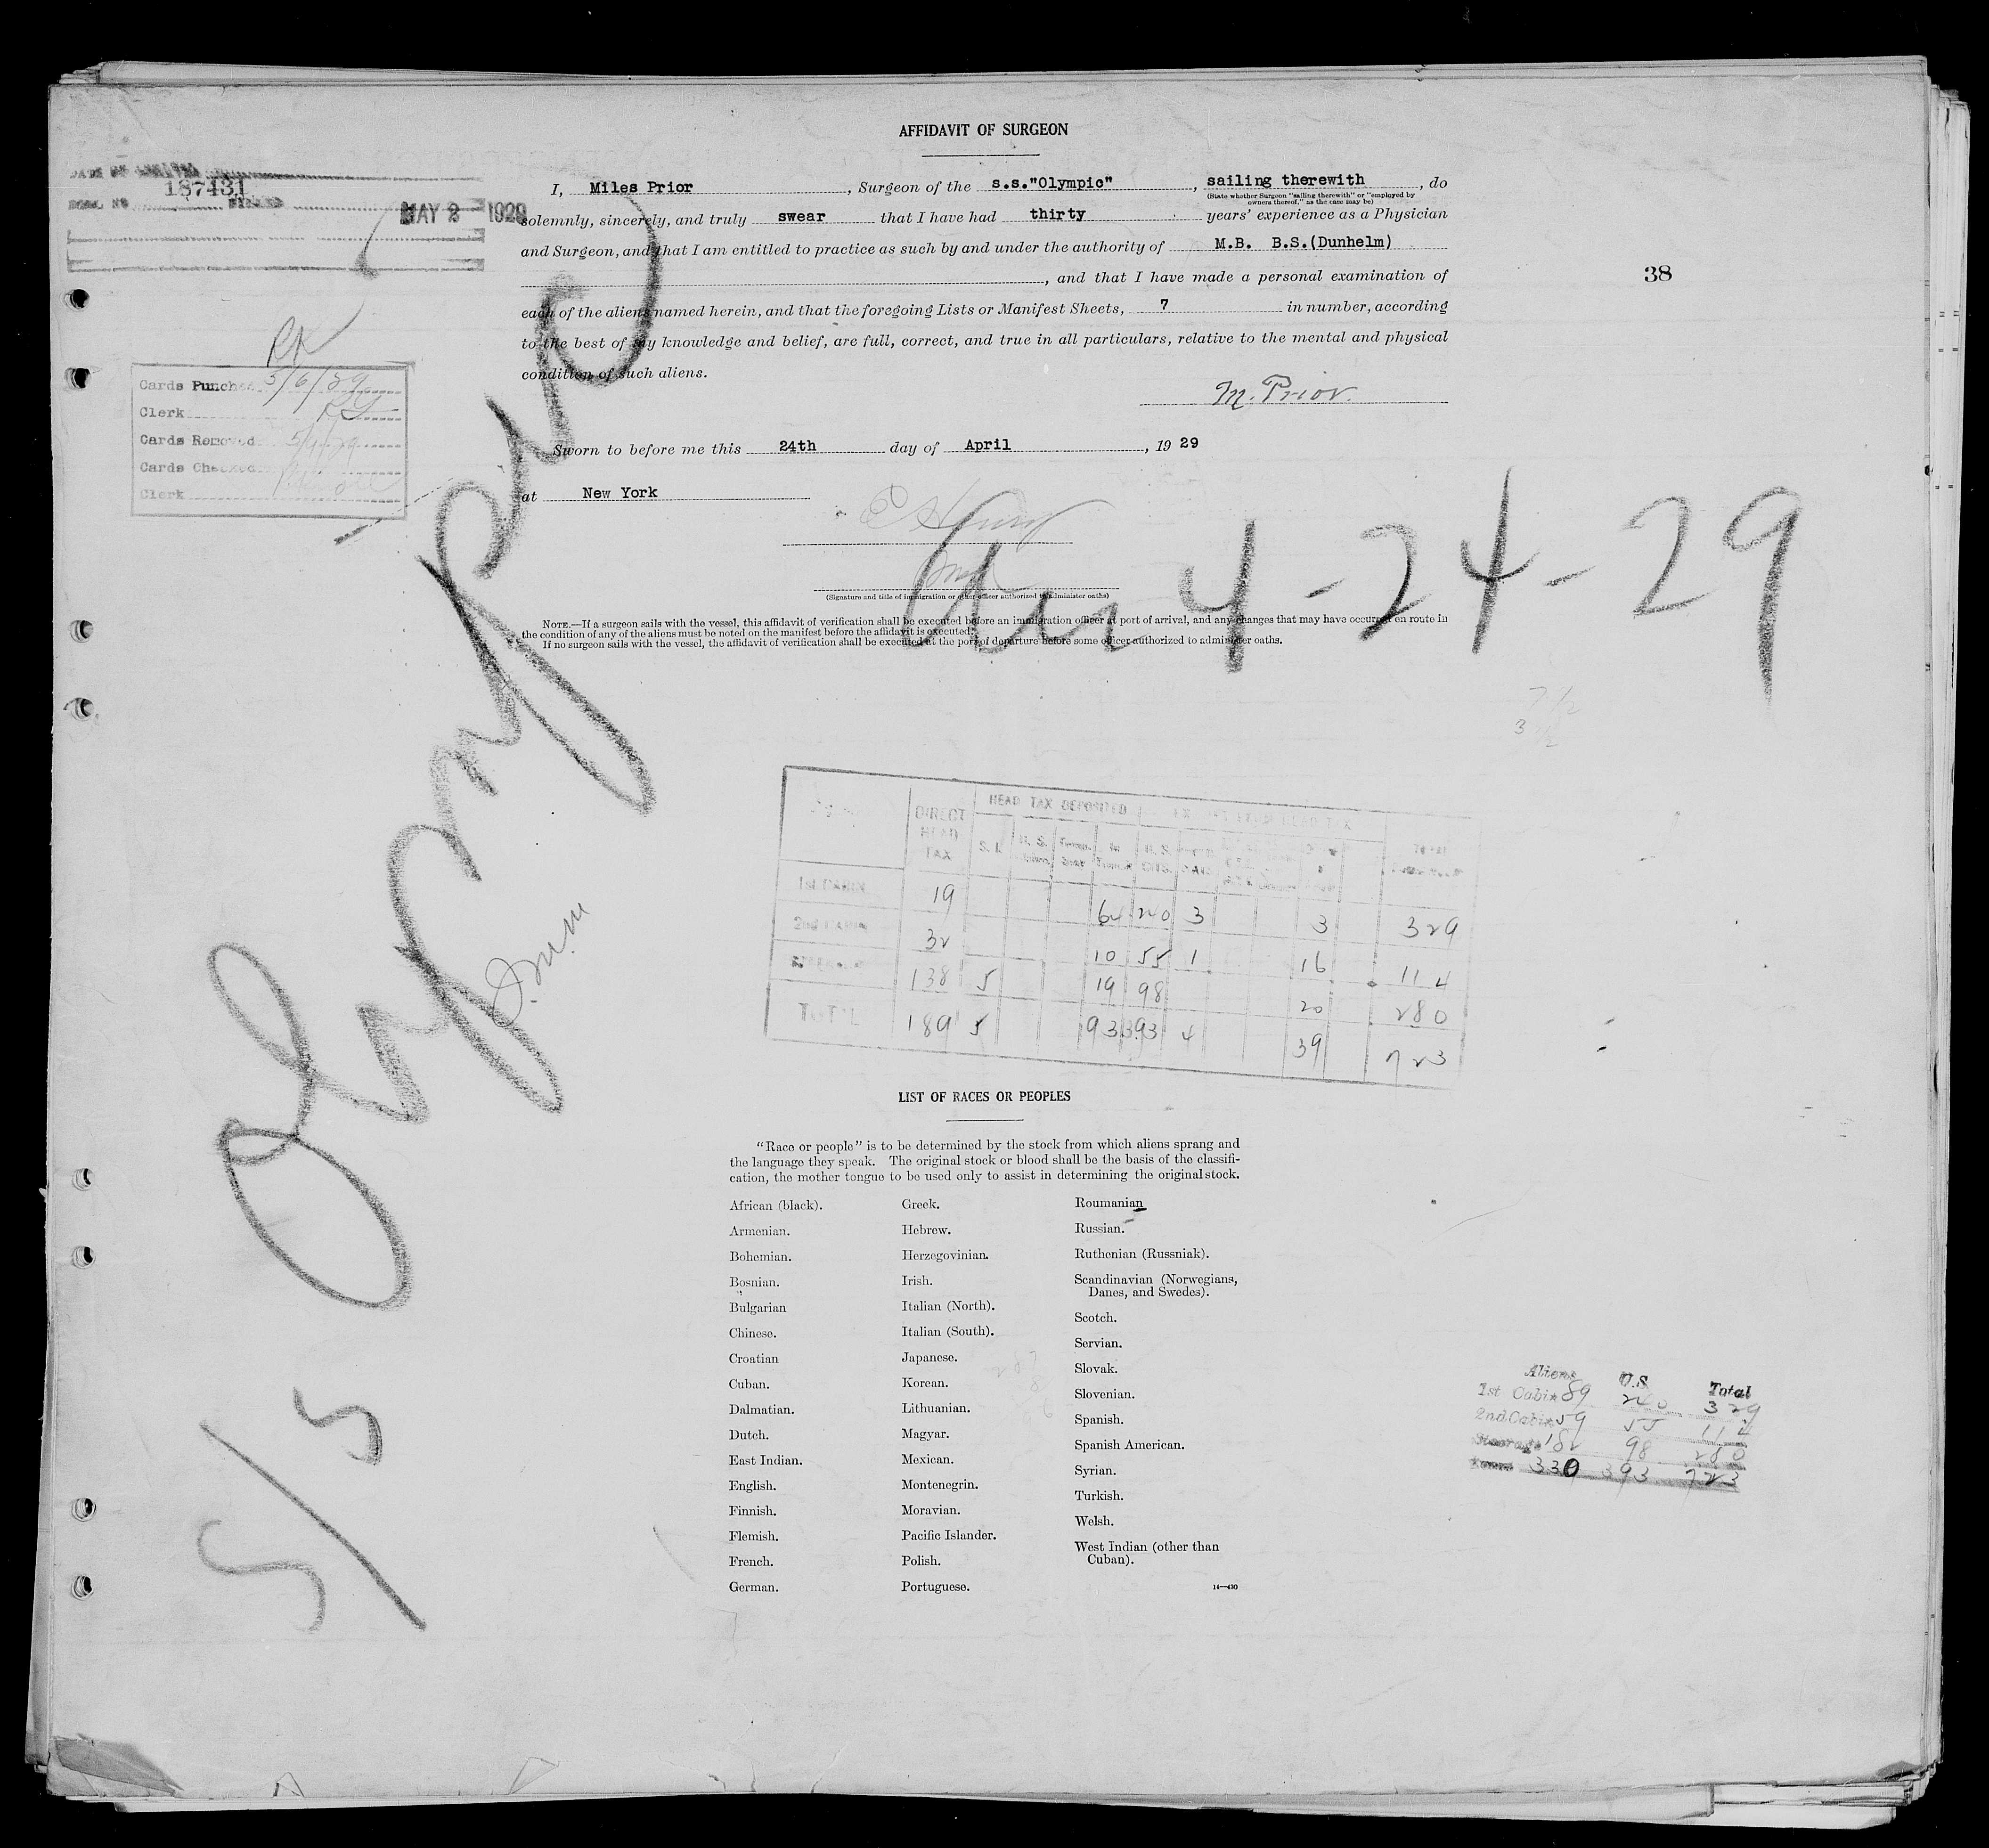 AFFIDAVIT OF SURGEON
187431
MAY 2 1929
I, Miles Prior, Surgeon of the s.s."Olympic", sailing therewith, do
(State whether Surgeon "sailing therewith" or "employed by
owners thereof," as the case may be)
solemnly, sincerely, and truly swear that I have had thirty years' experience as a Physician
and Surgeon, and that I am entitled to practice as such by and under the authority of M.B. B.S.(Dunhelm)
, and that I have made a personal examination of
38
each of the aliens named herein, and that the foregoing Lists or Manifest Sheets, 7 in number, according
to the best of my knowledge and belief, are full, correct, and true in all particulars, relative to the mental and physical
condition of such aliens.
M. Prior.
Cards Punched 5/6/29
Clerk
Cards Removed
Cards Checked
Clerk
Sworn to before me this 24th day of April, 1929
at New York
(Signature and title of immigration or other officer authorized to administer oaths)
4-24-29
NOTE.—If a surgeon sails with the vessel, this affidavit of verification shall be executed before an immigration officer at port of arrival, and any changes that may have occurred en route in
the condition of any of the aliens must be noted on the manifest before the affidavit is executed.
If no surgeon sails with the vessel, the affidavit of verification shall be executed at the port of departure before some officer authorized to administer oaths.
S/S Olympic
DIRECT HEAD TAX
HEAD TAX DEPOSITED
EXEMPT FROM HEAD TAX
S.I.
1st CABIN 19 64 240 3 3 329
2nd CABIN 32 10 55 1 16 114
138 5 19 98 20 280
TOTAL 189 5 93 393 4 39 723
LIST OF RACES OR PEOPLES
"Race or people" is to be determined by the stock from which aliens sprang and
the language they speak. The original stock or blood shall be the basis of the classifi-
cation, the mother tongue to be used only to assist in determining the original stock.
African (black).
Armenian.
Bohemian.
Bosnian.
Bulgarian
Chinese.
Croatian
Cuban.
Dalmatian.
Dutch.
East Indian.
English.
Finnish.
Flemish.
French.
German.
Greek.
Hebrew.
Herzegovinian.
Irish.
Italian (North).
Italian (South).
Japanese.
Korean.
Lithuanian.
Magyar.
Mexican.
Montenegrin.
Moravian.
Pacific Islander.
Polish.
Portuguese.
Roumanian
Russian.
Ruthenian (Russniak).
Scandinavian (Norwegians,
Danes, and Swedes).
Scotch.
Servian.
Slovak.
Slovenian.
Spanish.
Spanish American.
Syrian.
Turkish.
Welsh.
West Indian (other than
Cuban).
14—430
Aliens U.S Total
1st Cabin 89 240 329
2nd Cabin 59 55 114
Steerage 182 98 280
330 393 723